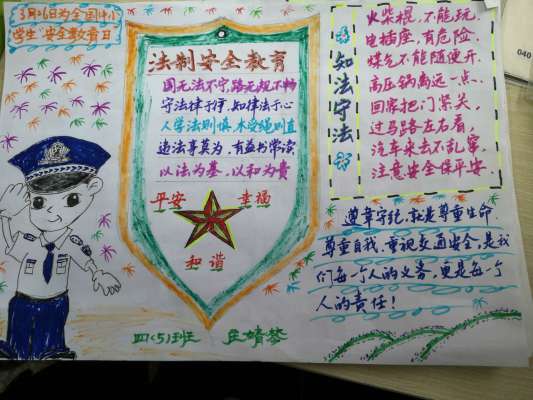 3月26日为全国中小
学生"安全教育日
法制安全教育
国无法不守,路无规不畅
守法律于伊,知律法于心
人学法则慎,木受绳则直
违法事莫为,有益书常读
以法为基,以和为贵
平安 幸福
和谐
四(5)班
知法守法
火柴棍,不能玩.
电插座,有危险.
煤气不能随便开.
高压锅离远一点.
回家把门紧关,
过马路左右看,
汽车来去不乱窜.
注意安全保平安.
遵章守纪,就是尊重生命.
尊重自我.重视交通安全,是我
们每一个人的义务,更是每一个
人的责任!
040